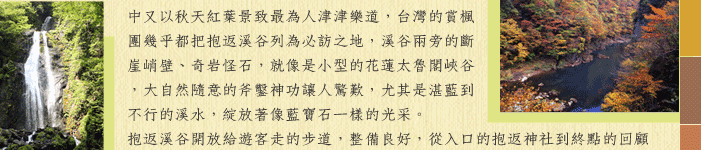 中又以秋天紅葉景致最為人津津樂道，台灣的賞楓
團幾乎都把抱返溪谷列為必訪之地，溪谷兩旁的斷
崖峭壁、奇岩怪石，就像是小型的花蓮太魯閣峽谷
，大自然隨意的斧鑿神功讓人驚歎，尤其是湛藍到
不行的溪水，綻放著像藍寶石一樣的光采。
抱返溪谷開放給遊客走的步道，整備良好，從入口的抱返神社到終點的回顧